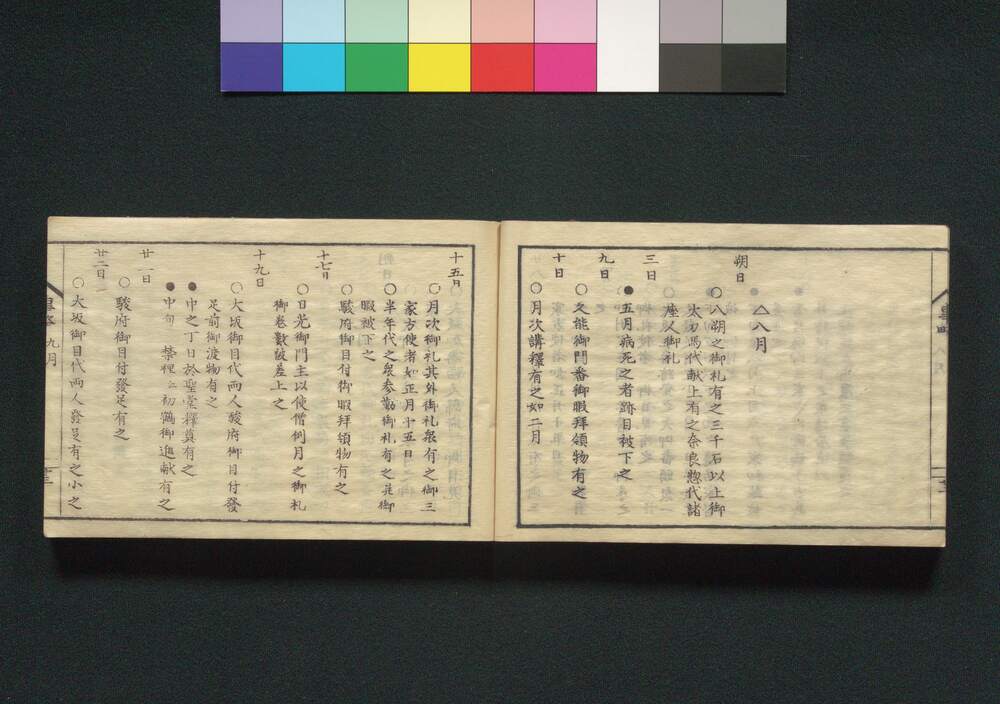 △八月
朔日
○八朔之御礼有之三千石以上御
太刀馬代献上有之奈良惣代諸
座人御礼
三日
●五月病死之者跡目被下之
九日
○久能御門番御暇拝領物有之
十日
○月次講釋有之如二月
十五日
○月次御礼其外御礼衆有之御三
家方使者如正月十五日
○半年代之衆参勤御礼有之並御
暇被下之
○駿府御目付御暇拝領物有之
十七日
○日光御門主以使僧例月之御札
御巻数被差上之
十九日
○大坂御目代両人駿府御目付發
足前御渡物有之
●中之丁日於聖堂釋奠有之
廿一日
●中旬 禁裡江初鶴御進献有之
○駿府御目付發足有之
廿二日
○大坂御目代両人發足有之小之
九月